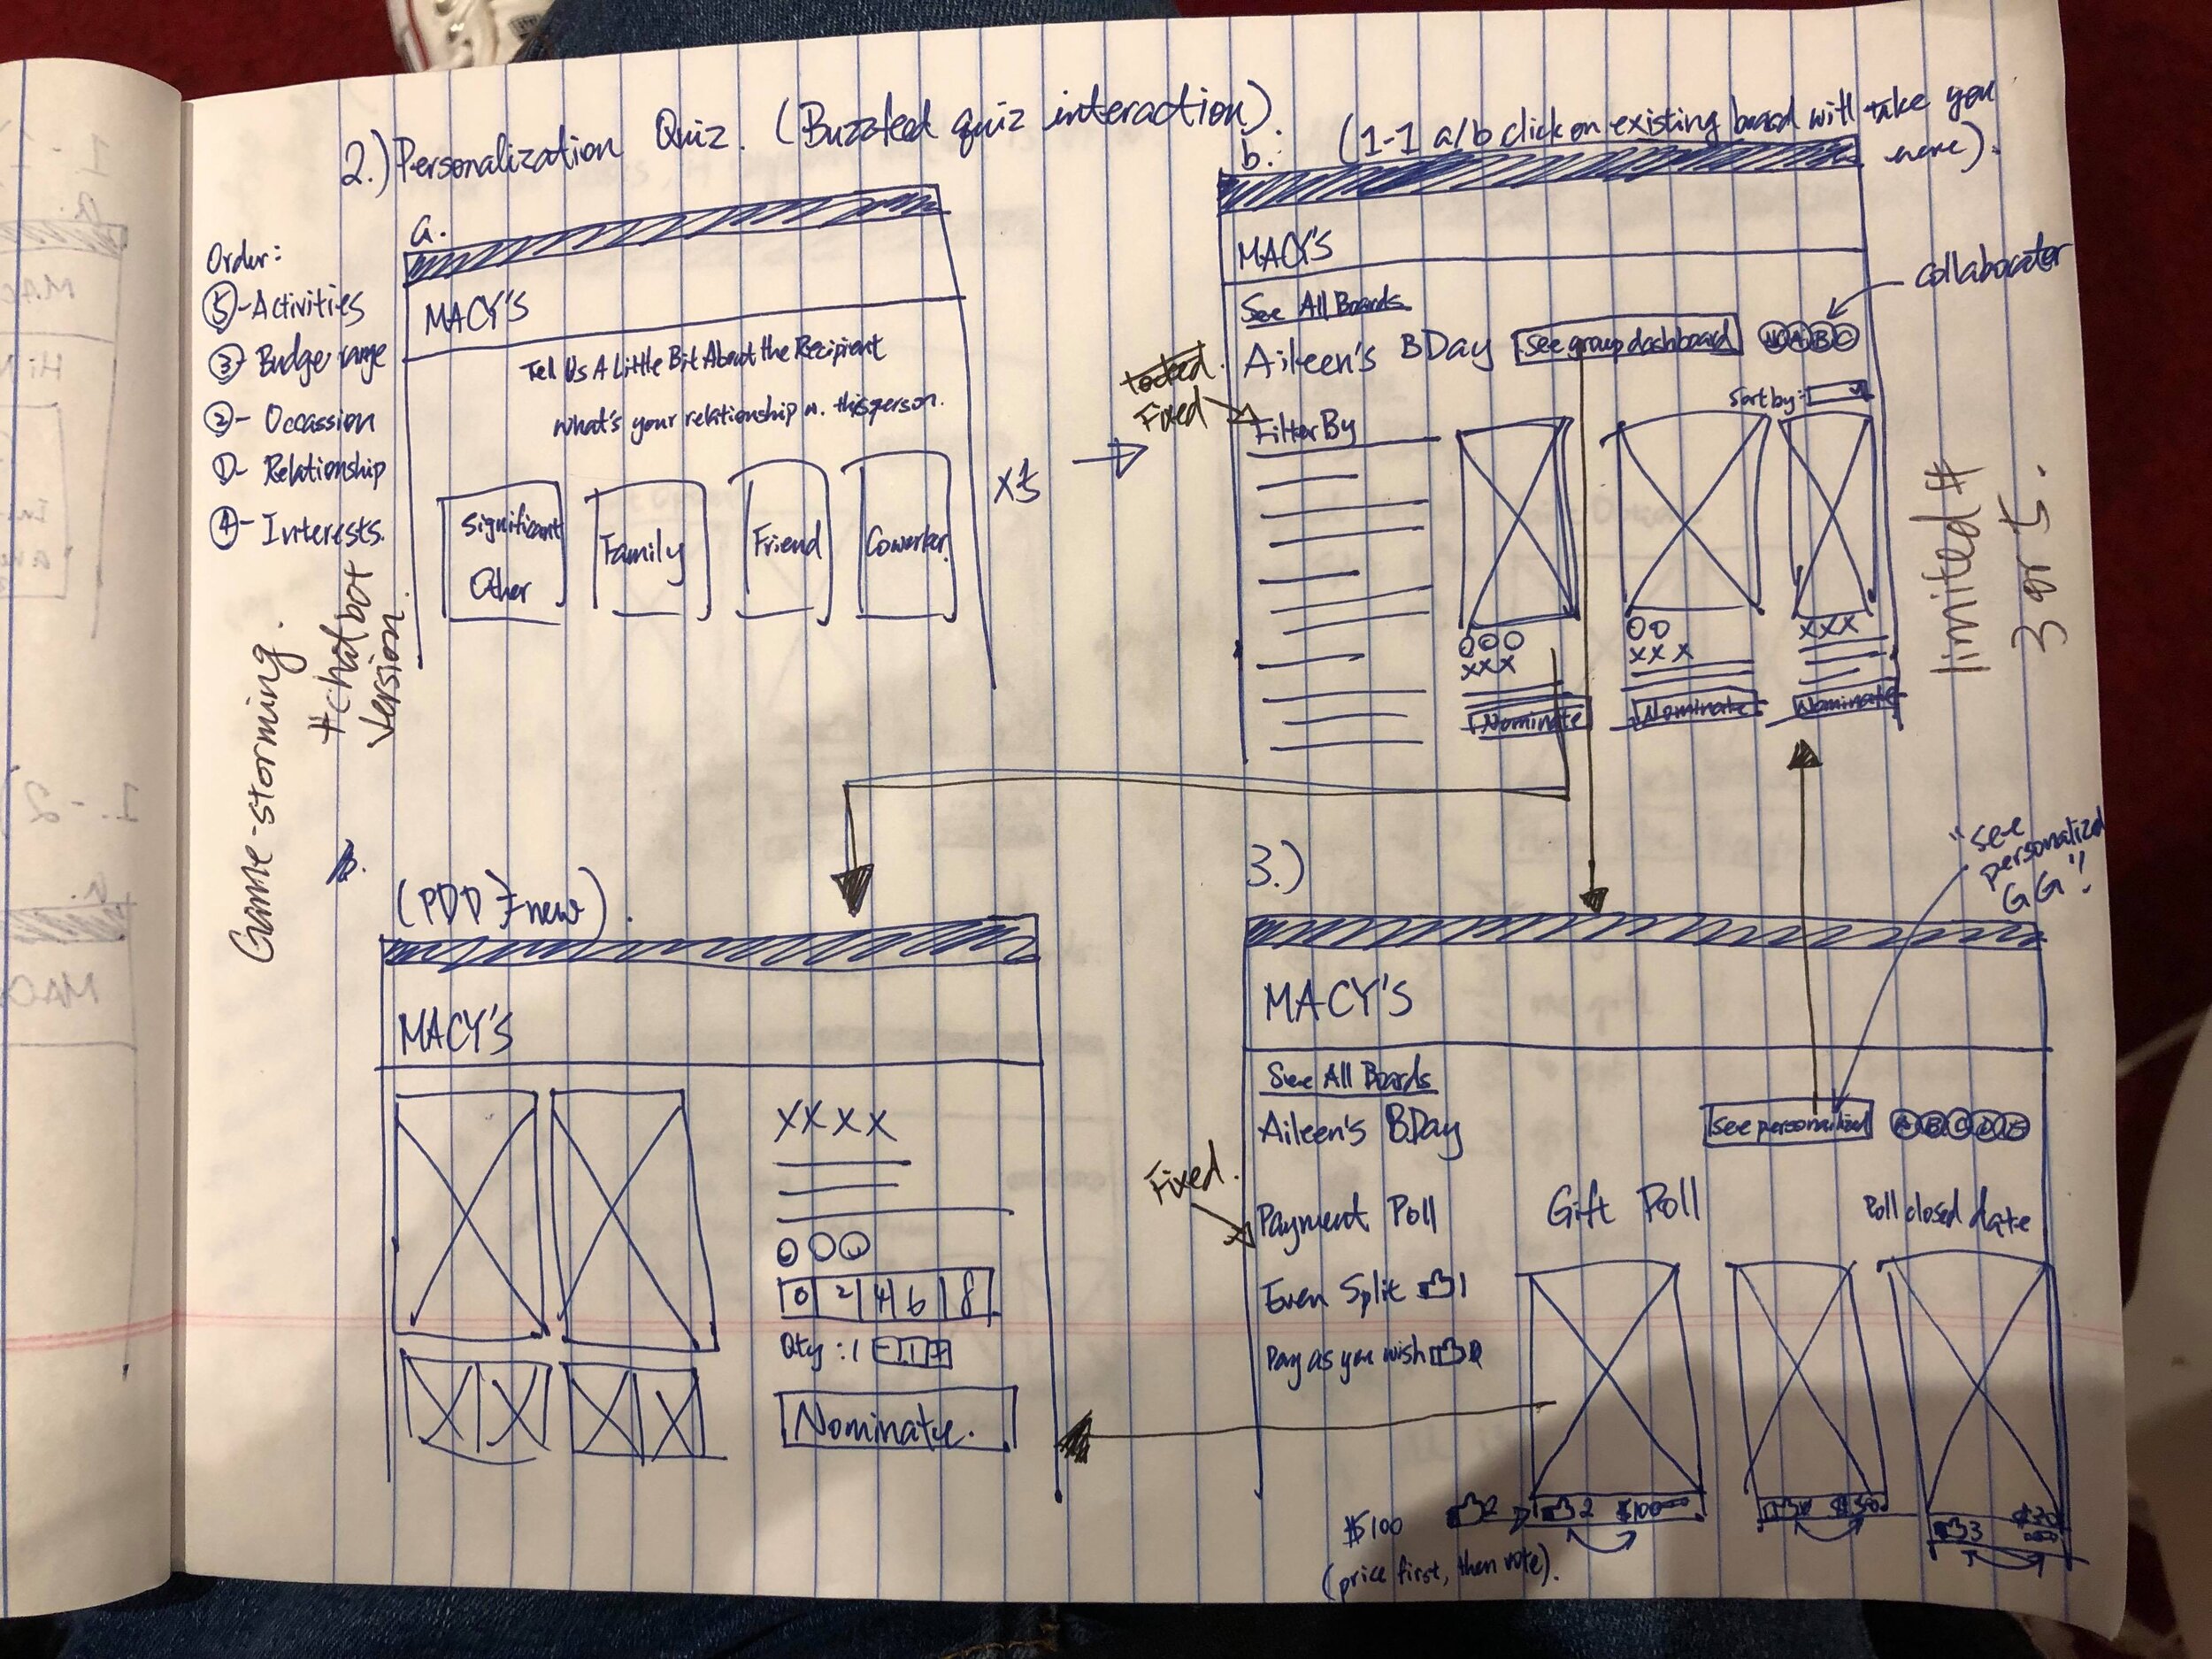 2.) Personalization Quiz. (Buzzfeed quiz interaction).
a.
Order:
⑤-Activities
③- Budge range
②- Occassion
①- Relationship
④- Interests.
+chatbot
version.
Game-storming.
MACY'S
Tell Us A Little Bit About the Recipient
What's your relationship w. this person.
Significant
Other
Family
Friend
Coworker
x5
b. (1-1 a/b click on existing board will take you
here).
MACY'S
collaborator
See All Boards
Aileen's BDay
See group dashboard
Sort by:
Locked.
Fixed
Filter By
XXX
Nominate
XXX
Nominate
XXX
Nominate
limited #
3 or 5.
b.
(PDD new).
MACY'S
XXXX
0 2 4 6 8
Qty: 1 - 1 +
Nominate.
3.)
"see
personalized
GG"!
MACY'S
See All Boards
Aileen's BDay
see personalized
A B C D E
Fixed.
Payment Poll
Gift Poll
Poll closed date
Even Split 1
Pay as you wish
2 $100
3 $30
$100 2
(price first, then vote).